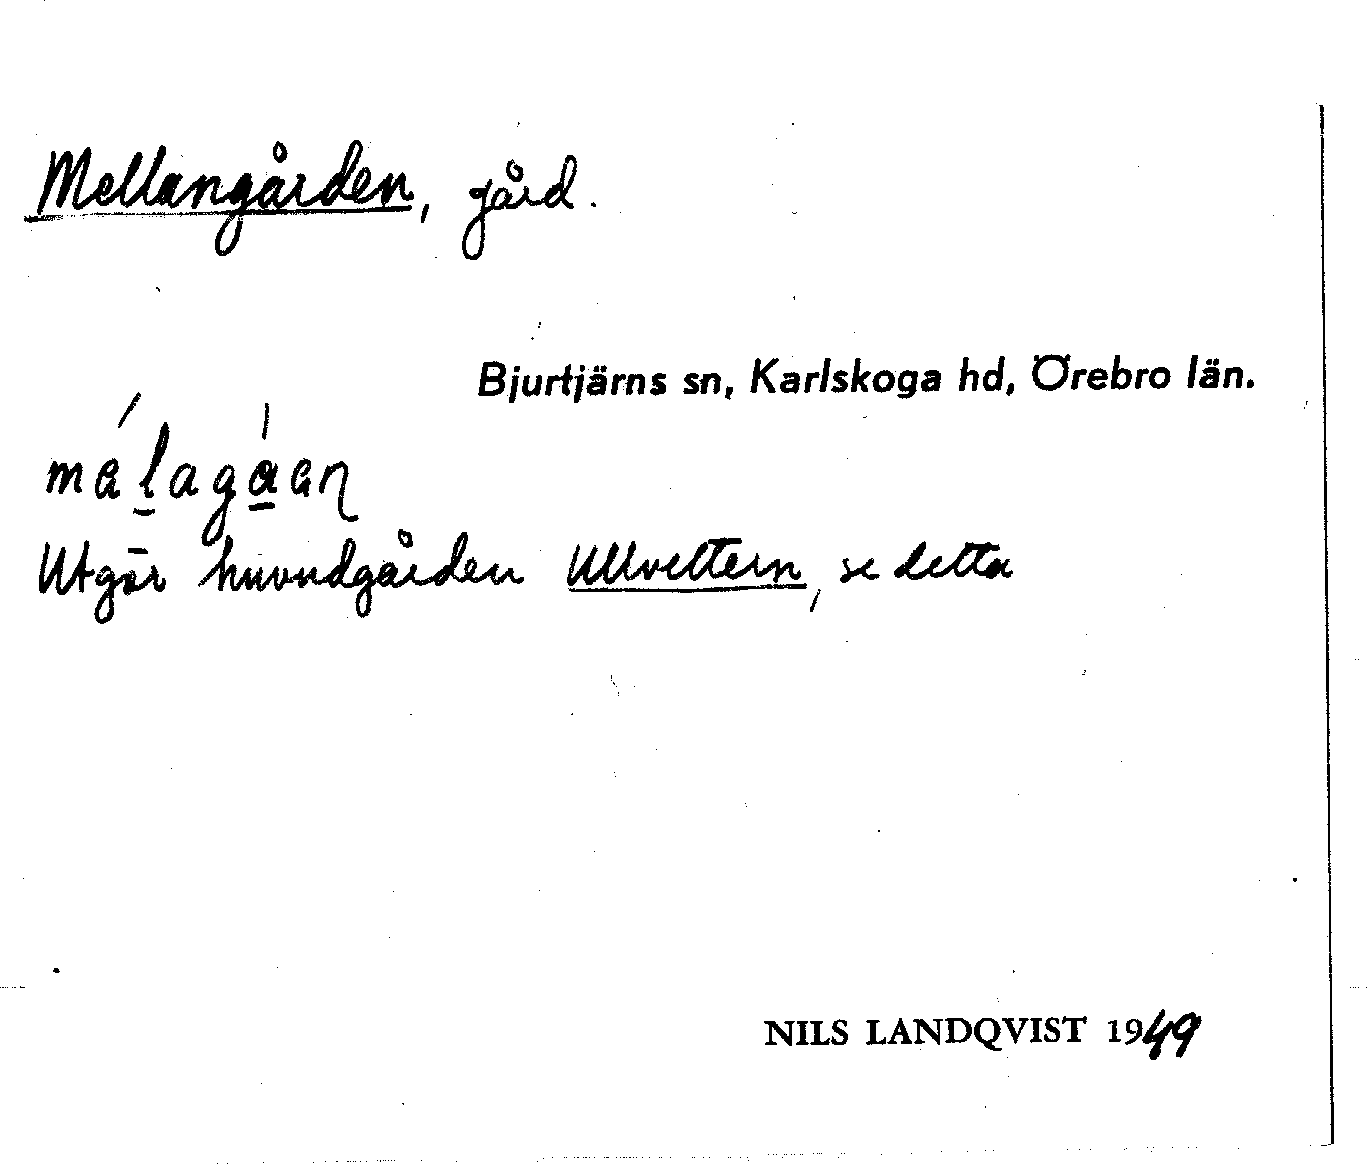 Mellangården, gård.
Bjurtjärns sn, Karlskoga hd, Örebro län.
Utgör huvudgården Ullvettern, se detta
NILS LANDQVIST 1949